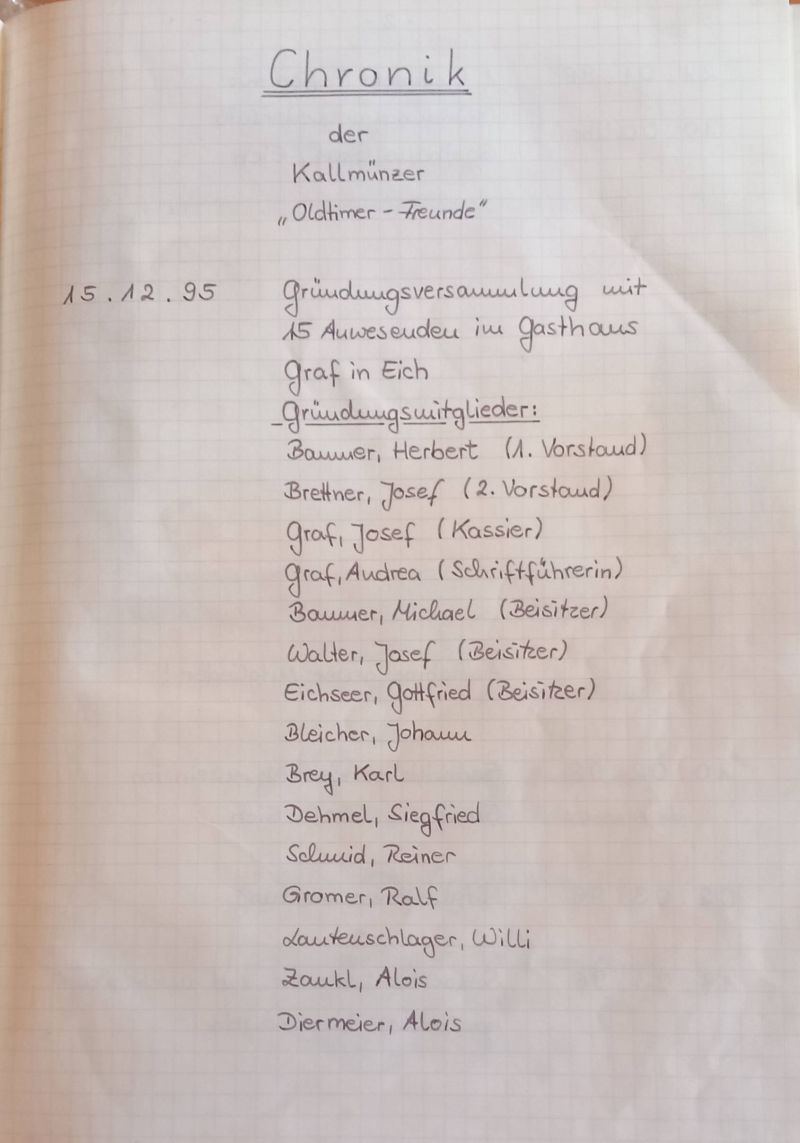 Chronik
der
Kallmünzer
„Oldtimer - Freunde"
15.12.95 Gründungsversammlung mit
15 Anwesenden im Gasthaus
Graf in Eich
Gründungsmitglieder:
Bammer, Herbert (1. Vorstand)
Brettner, Josef (2. Vorstand)
Graf, Josef (Kassier)
Graf, Andrea (Schriftführerin)
Bammer, Michael (Beisitzer)
Walter, Josef (Beisitzer)
Eichseer, Gottfried (Beisitzer)
Bleicher, Johann
Brey, Karl
Dehmel, Siegfried
Schmid, Reiner
Gromer, Ralf
Lautenschlager, Willi
Zankl, Alois
Diermeier, Alois